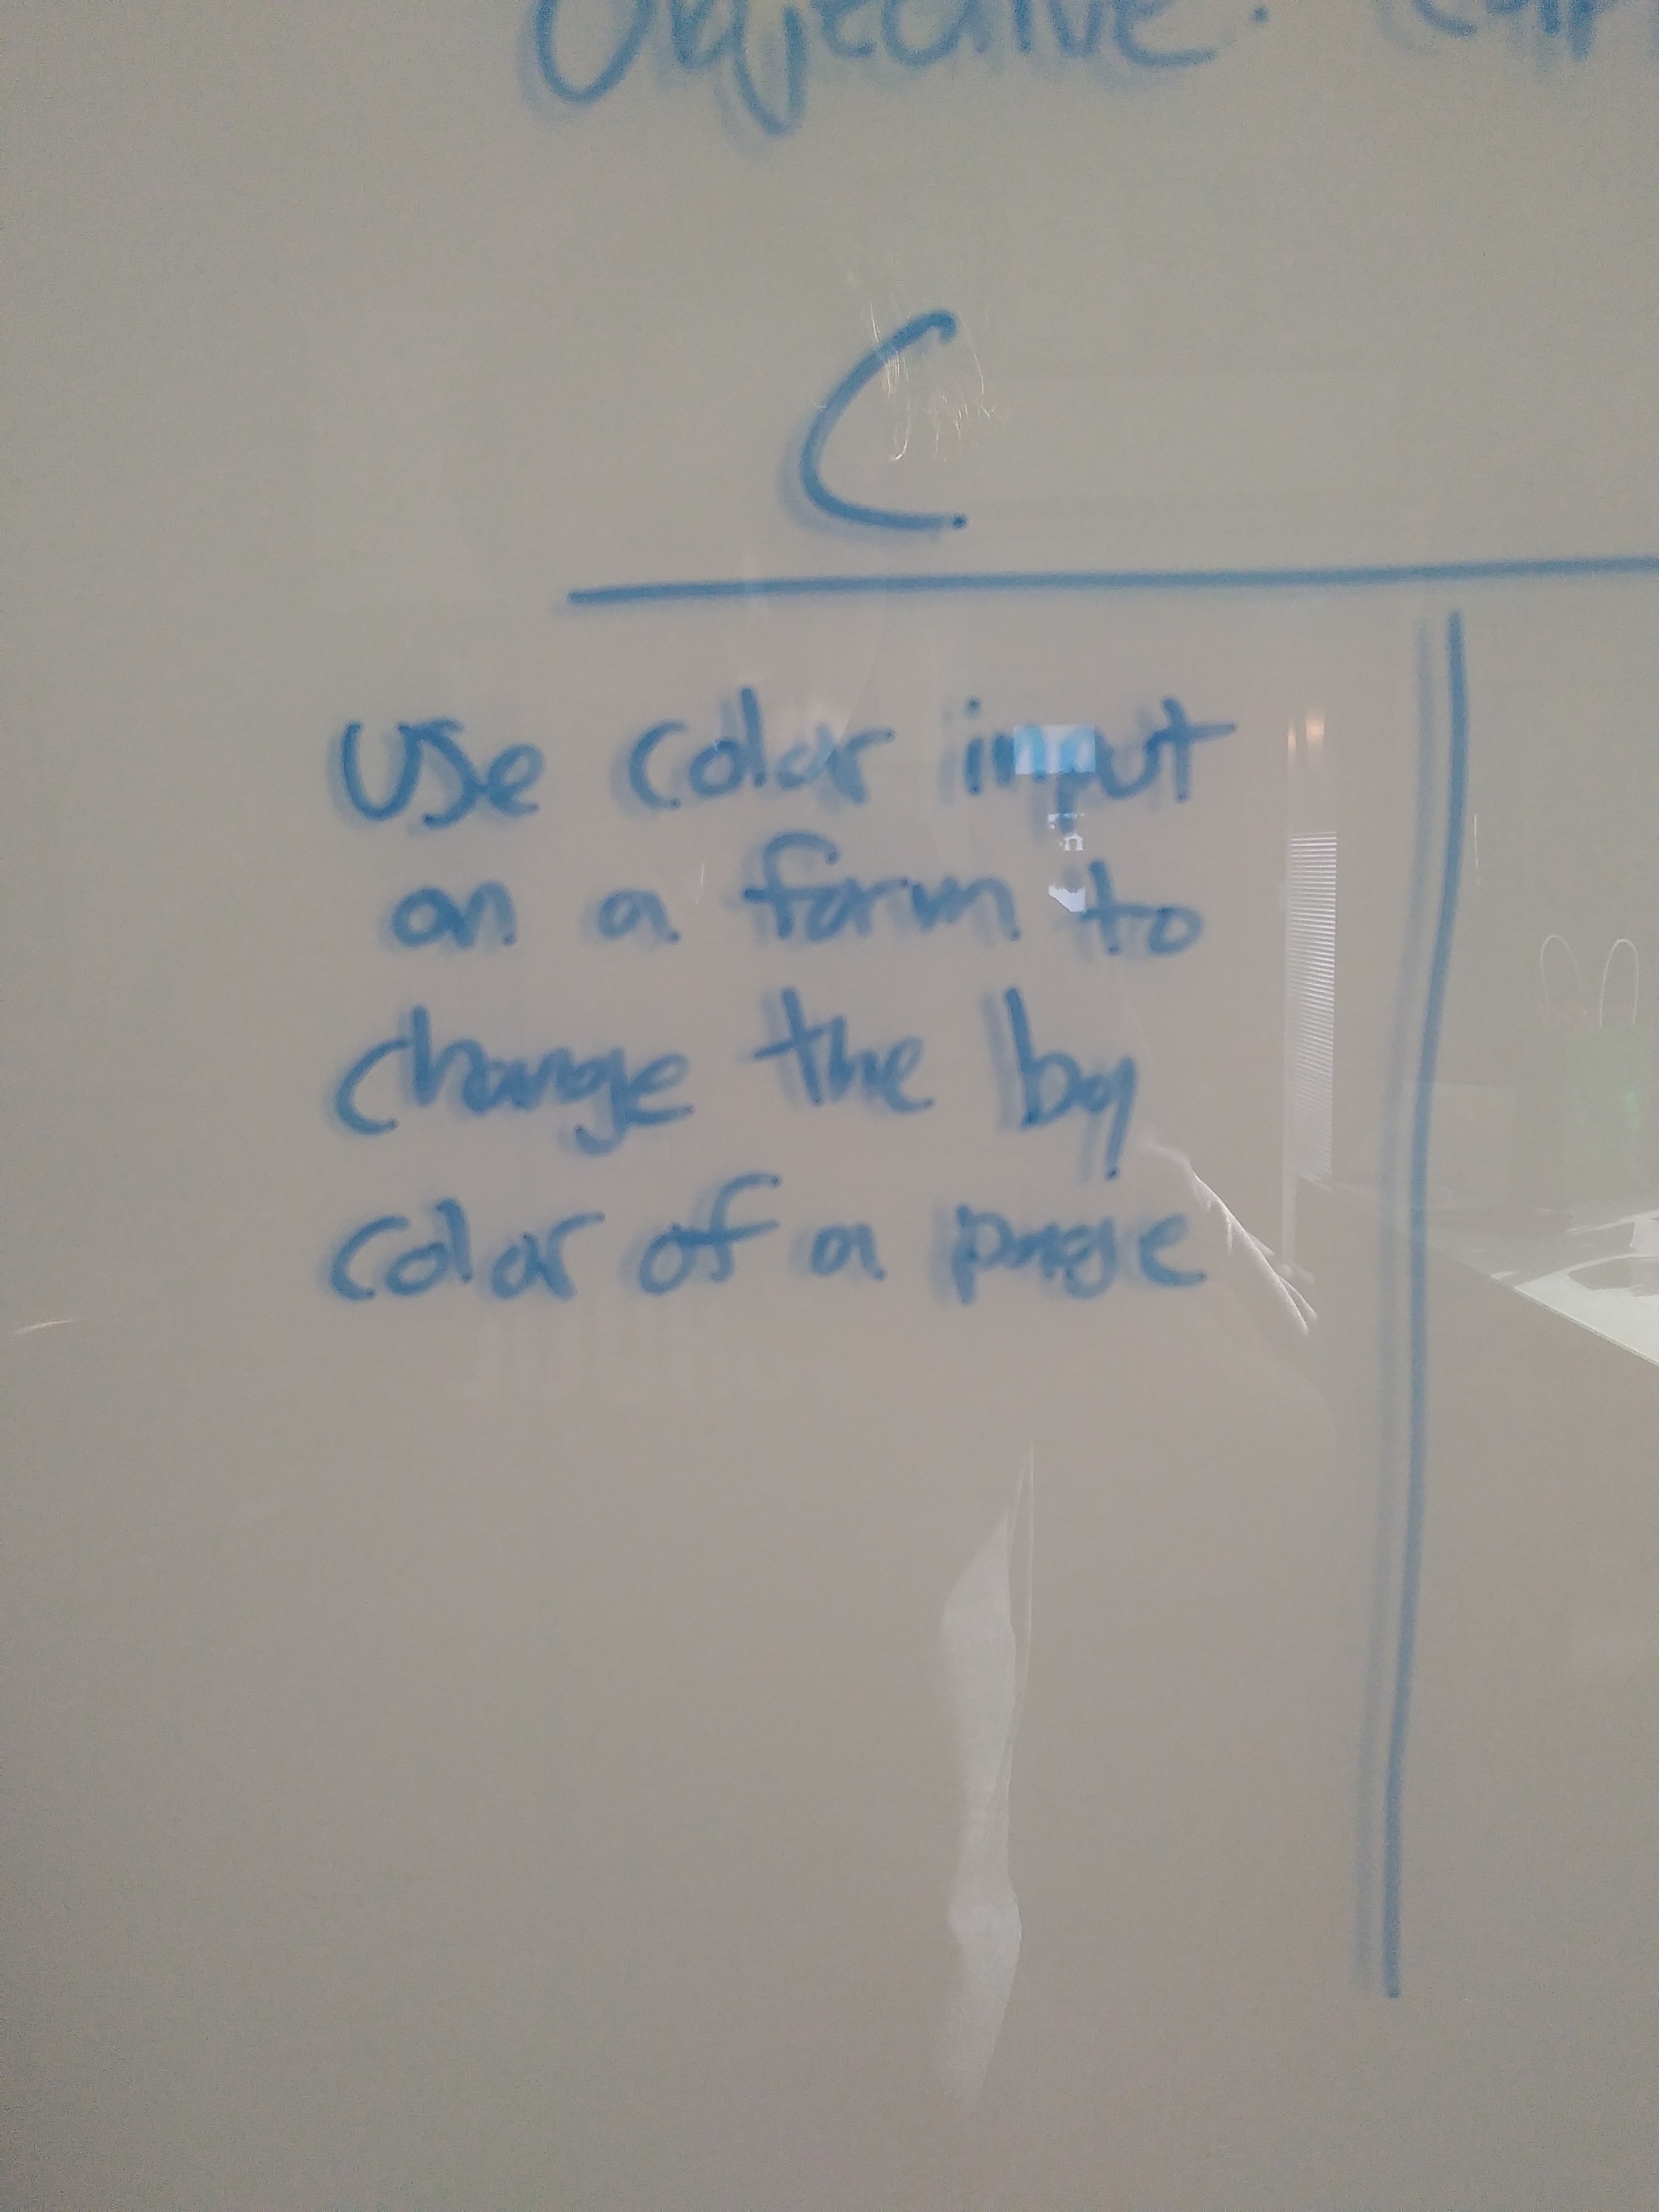 Objective:
C
Use color input
on a form to
change the bg
color of a page